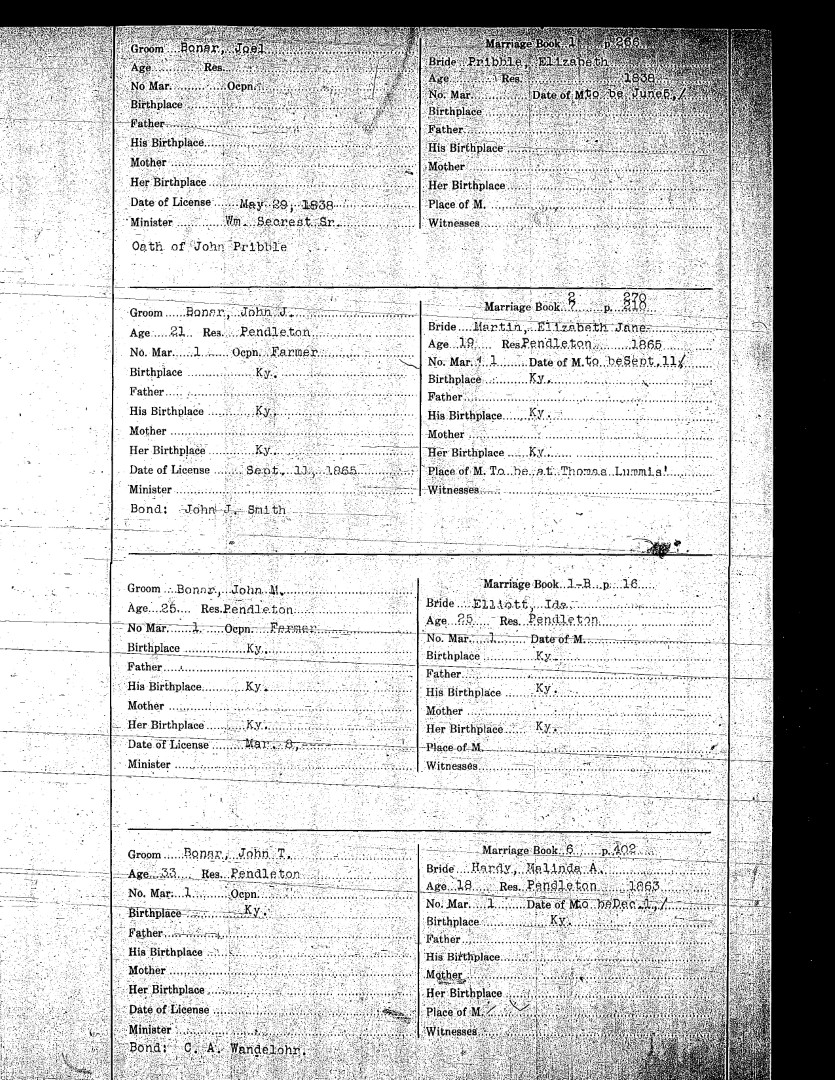 Groom Bonar, Joel
Age Res.
No Mar. Ocpn.
Birthplace
Father
His Birthplace
Mother
Her Birthplace
Date of License May 29, 1838
Minister Wm. Secrest Sr.
Oath of John Pribble
Marriage Book 1 p. 266
Bride Pribble, Elizabeth
Age Res. 1838
No. Mar. Date of M. to be June 5, /
Birthplace
Father
His Birthplace
Mother
Her Birthplace
Place of M.
Witnesses
Groom Bonar, John J.
Age 21 Res. Pendleton
No. Mar. 1 Ocpn. Farmer
Birthplace Ky.
Father
His Birthplace Ky.
Mother
Her Birthplace Ky.
Date of License Sept. 11, 1865
Minister
Bond: John J. Smith
2 270
Marriage Book 7 p. 210
Bride Martin, Elizabeth Jane
Age 19 Res. Pendleton 1865
No. Mar. 1 Date of M. to be Sept. 11/
Birthplace Ky.
Father
His Birthplace Ky.
Mother
Her Birthplace Ky.
Place of M. To be at Thomas Lummis'
Witnesses
Groom Bonar, John M.
Age 25 Res. Pendleton
No Mar. 1 Ocpn. Farmer
Birthplace Ky.
Father
His Birthplace Ky.
Mother
Her Birthplace Ky.
Date of License Mar. 8,
Minister
Marriage Book 1-B p. 16
Bride Elliott, Ida
Age 25 Res. Pendleton
No. Mar. 1 Date of M.
Birthplace Ky.
Father
His Birthplace Ky.
Mother
Her Birthplace Ky.
Place of M.
Witnesses
Groom Bonar, John T.
Age 33 Res. Pendleton
No. Mar. 1 Ocpn.
Birthplace Ky.
Father
His Birthplace
Mother
Her Birthplace
Date of License
Minister
Bond: C. A. Wandelohr.
Marriage Book 6 p. 402
Bride Hardy, Malinda A.
Age 18 Res. Pendleton 1863
No. Mar. 1 Date of M. to be Dec. 1, /
Birthplace Ky.
Father
His Birthplace
Mother
Her Birthplace
Place of M.
Witnesses